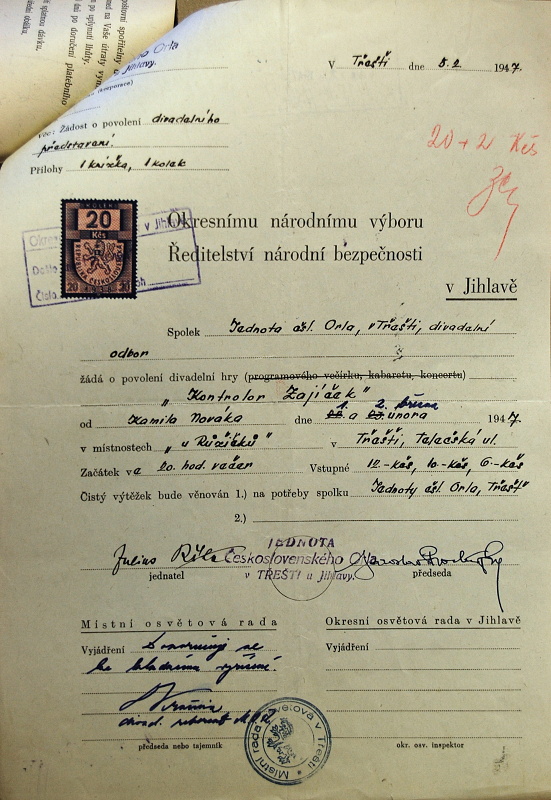 Orla
Jihlavy.
V Třešti dne 8.2. 1947.
Věc: Žádost o povolení divadelního
představení.
Přílohy 1 knížka, 1 kolek
20 + 2 Kčs
20
Kčs
REPUBLIKA ČESKOSLOVENSKÁ
20 1938 20
v Jihlavě
Okresnímu národnímu výboru
Ředitelství národní bezpečnosti
v Jihlavě
Spolek Jednota čsl. Orla, v Třešti, divadelní
odbor
žádá o povolení divadelní hry (programového večírku, kabaretu, koncertu)
„Kontrolor Zajíček"
od Kamila Nováka dne 1. a 2. března února 1947
v místnostech „u Růžičků" v Třešti, Telečská ul.
Začátek ve 20. hod. večer Vstupné 12.-Kčs, 10.-Kčs, 6.-Kčs
Čistý výtěžek bude věnován 1.) na potřeby spolku Jednoty čsl. Orla, Třešť
2.)
JEDNOTA
Československého
v TŘEŠTI u Jihlavy.
Julius
jednatel
předseda
Místní osvětová rada
Okresní osvětová rada v Jihlavě
Vyjádření
Vyjádření
předseda nebo tajemník
okr. osv. inspektor
Místní rada osvětová v Třešti